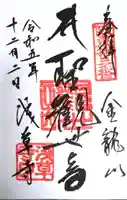 奉拝
金龍山
聖観世音
浅草寺
令和五年
十二月二日